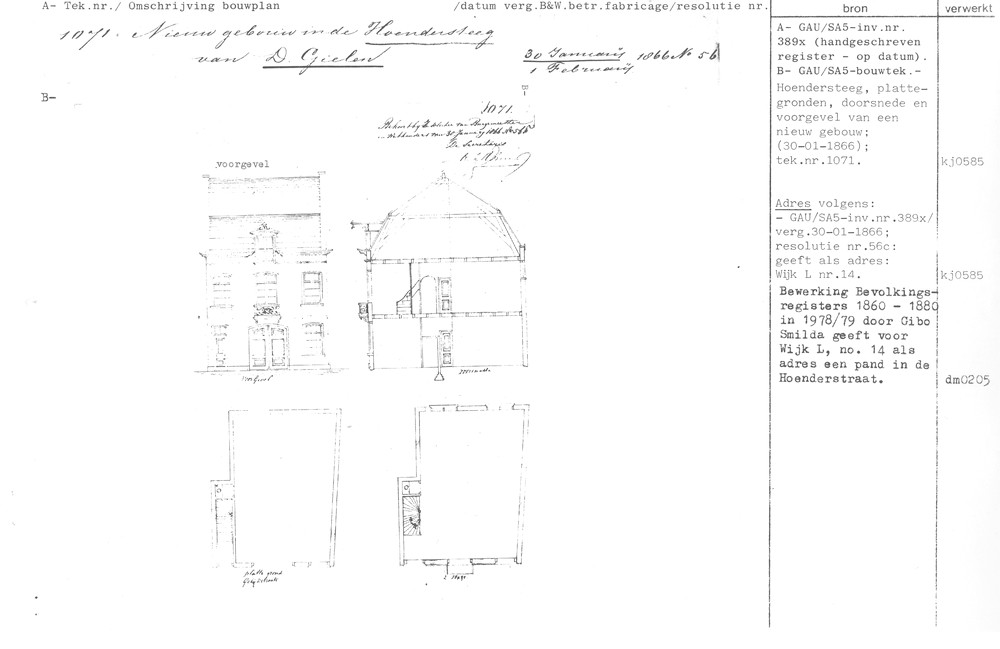 A- Tek.nr./ Omschrijving bouwplan /datum verg.B&W.betr.fabricage/resolutie nr.
bron
verwerkt
1071. Nieuw gebouw in de Hoendersteeg
van D. Gielen
30 Januarij 1866 No 56
1 Februarij
B-
1071.
voorgevel
A- GAU/SA5-inv.nr.
389x (handgeschreven
register - op datum).
B- GAU/SA5-bouwtek.-
Hoendersteeg, platte-
gronden, doorsnede en
voorgevel van een
nieuw gebouw;
(30-01-1866);
tek.nr.1071.
kj0585
Adres volgens:
- GAU/SA5-inv.nr.389x/
verg.30-01-1866;
resolutie nr.56c:
geeft als adres:
Wijk L nr.14.
kj0585
Bewerking Bevolkings-
registers 1860 - 1880
in 1978/79 door Gibo
Smilda geeft voor
Wijk L, no. 14 als
adres een pand in de
Hoenderstraat.
dm0205
platte grond